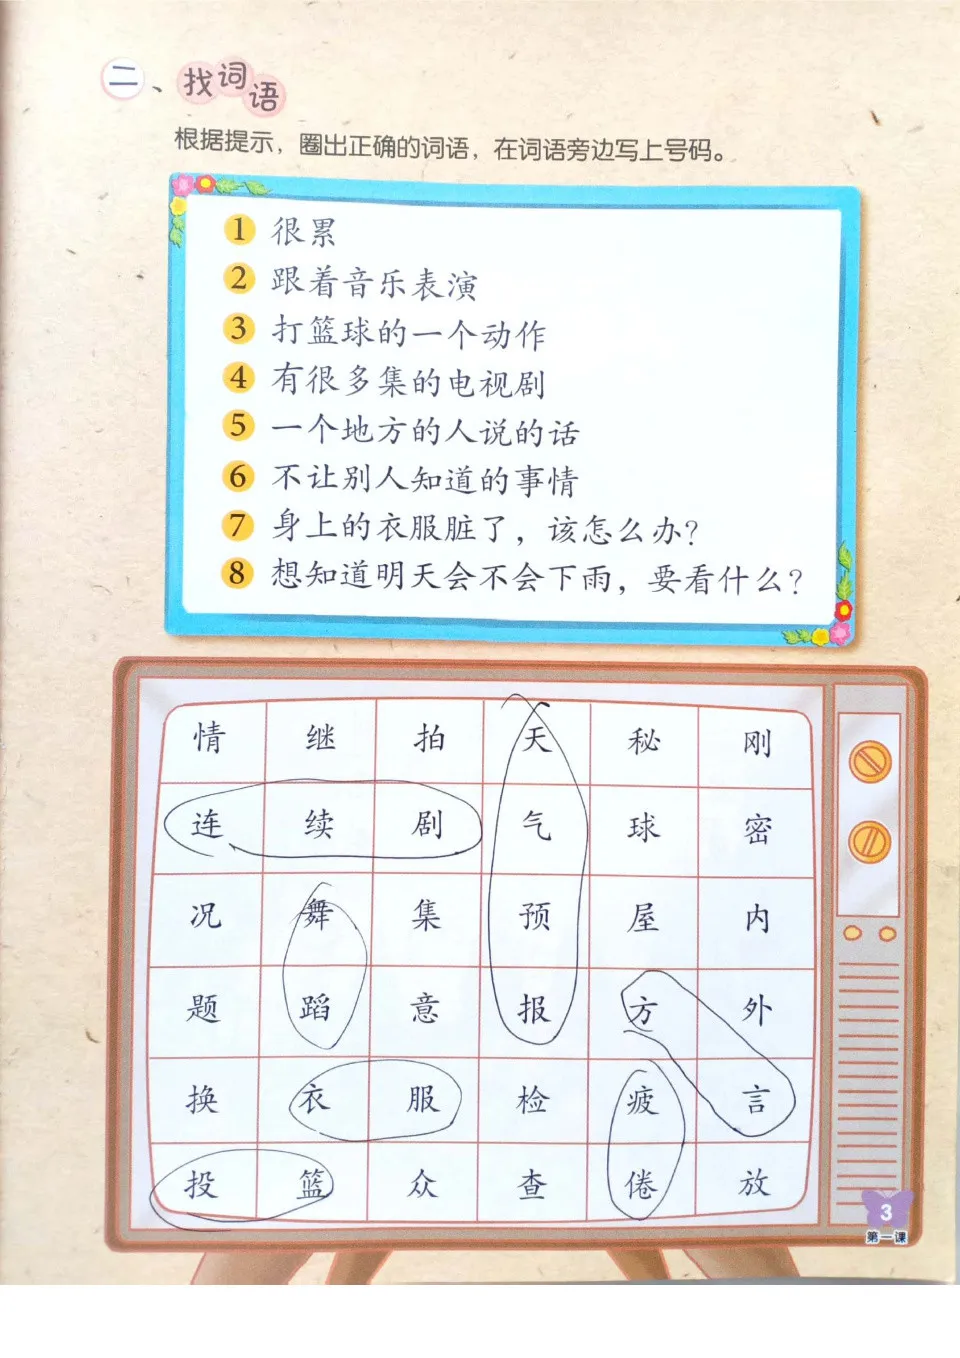 二、找词语
根据提示，圈出正确的词语，在词语旁边写上号码。
1 很累
2 跟着音乐表演
3 打篮球的一个动作
4 有很多集的电视剧
5 一个地方的人说的话
6 不让别人知道的事情
7 身上的衣服脏了，该怎么办？
8 想知道明天会不会下雨，要看什么？
情 继 拍 天 秘 刚
连 续 剧 气 球 密
况 舞 集 预 屋 内
题 蹈 意 报 方 外
换 衣 服 检 疲 言
投 篮 众 查 倦 放
3
第一课